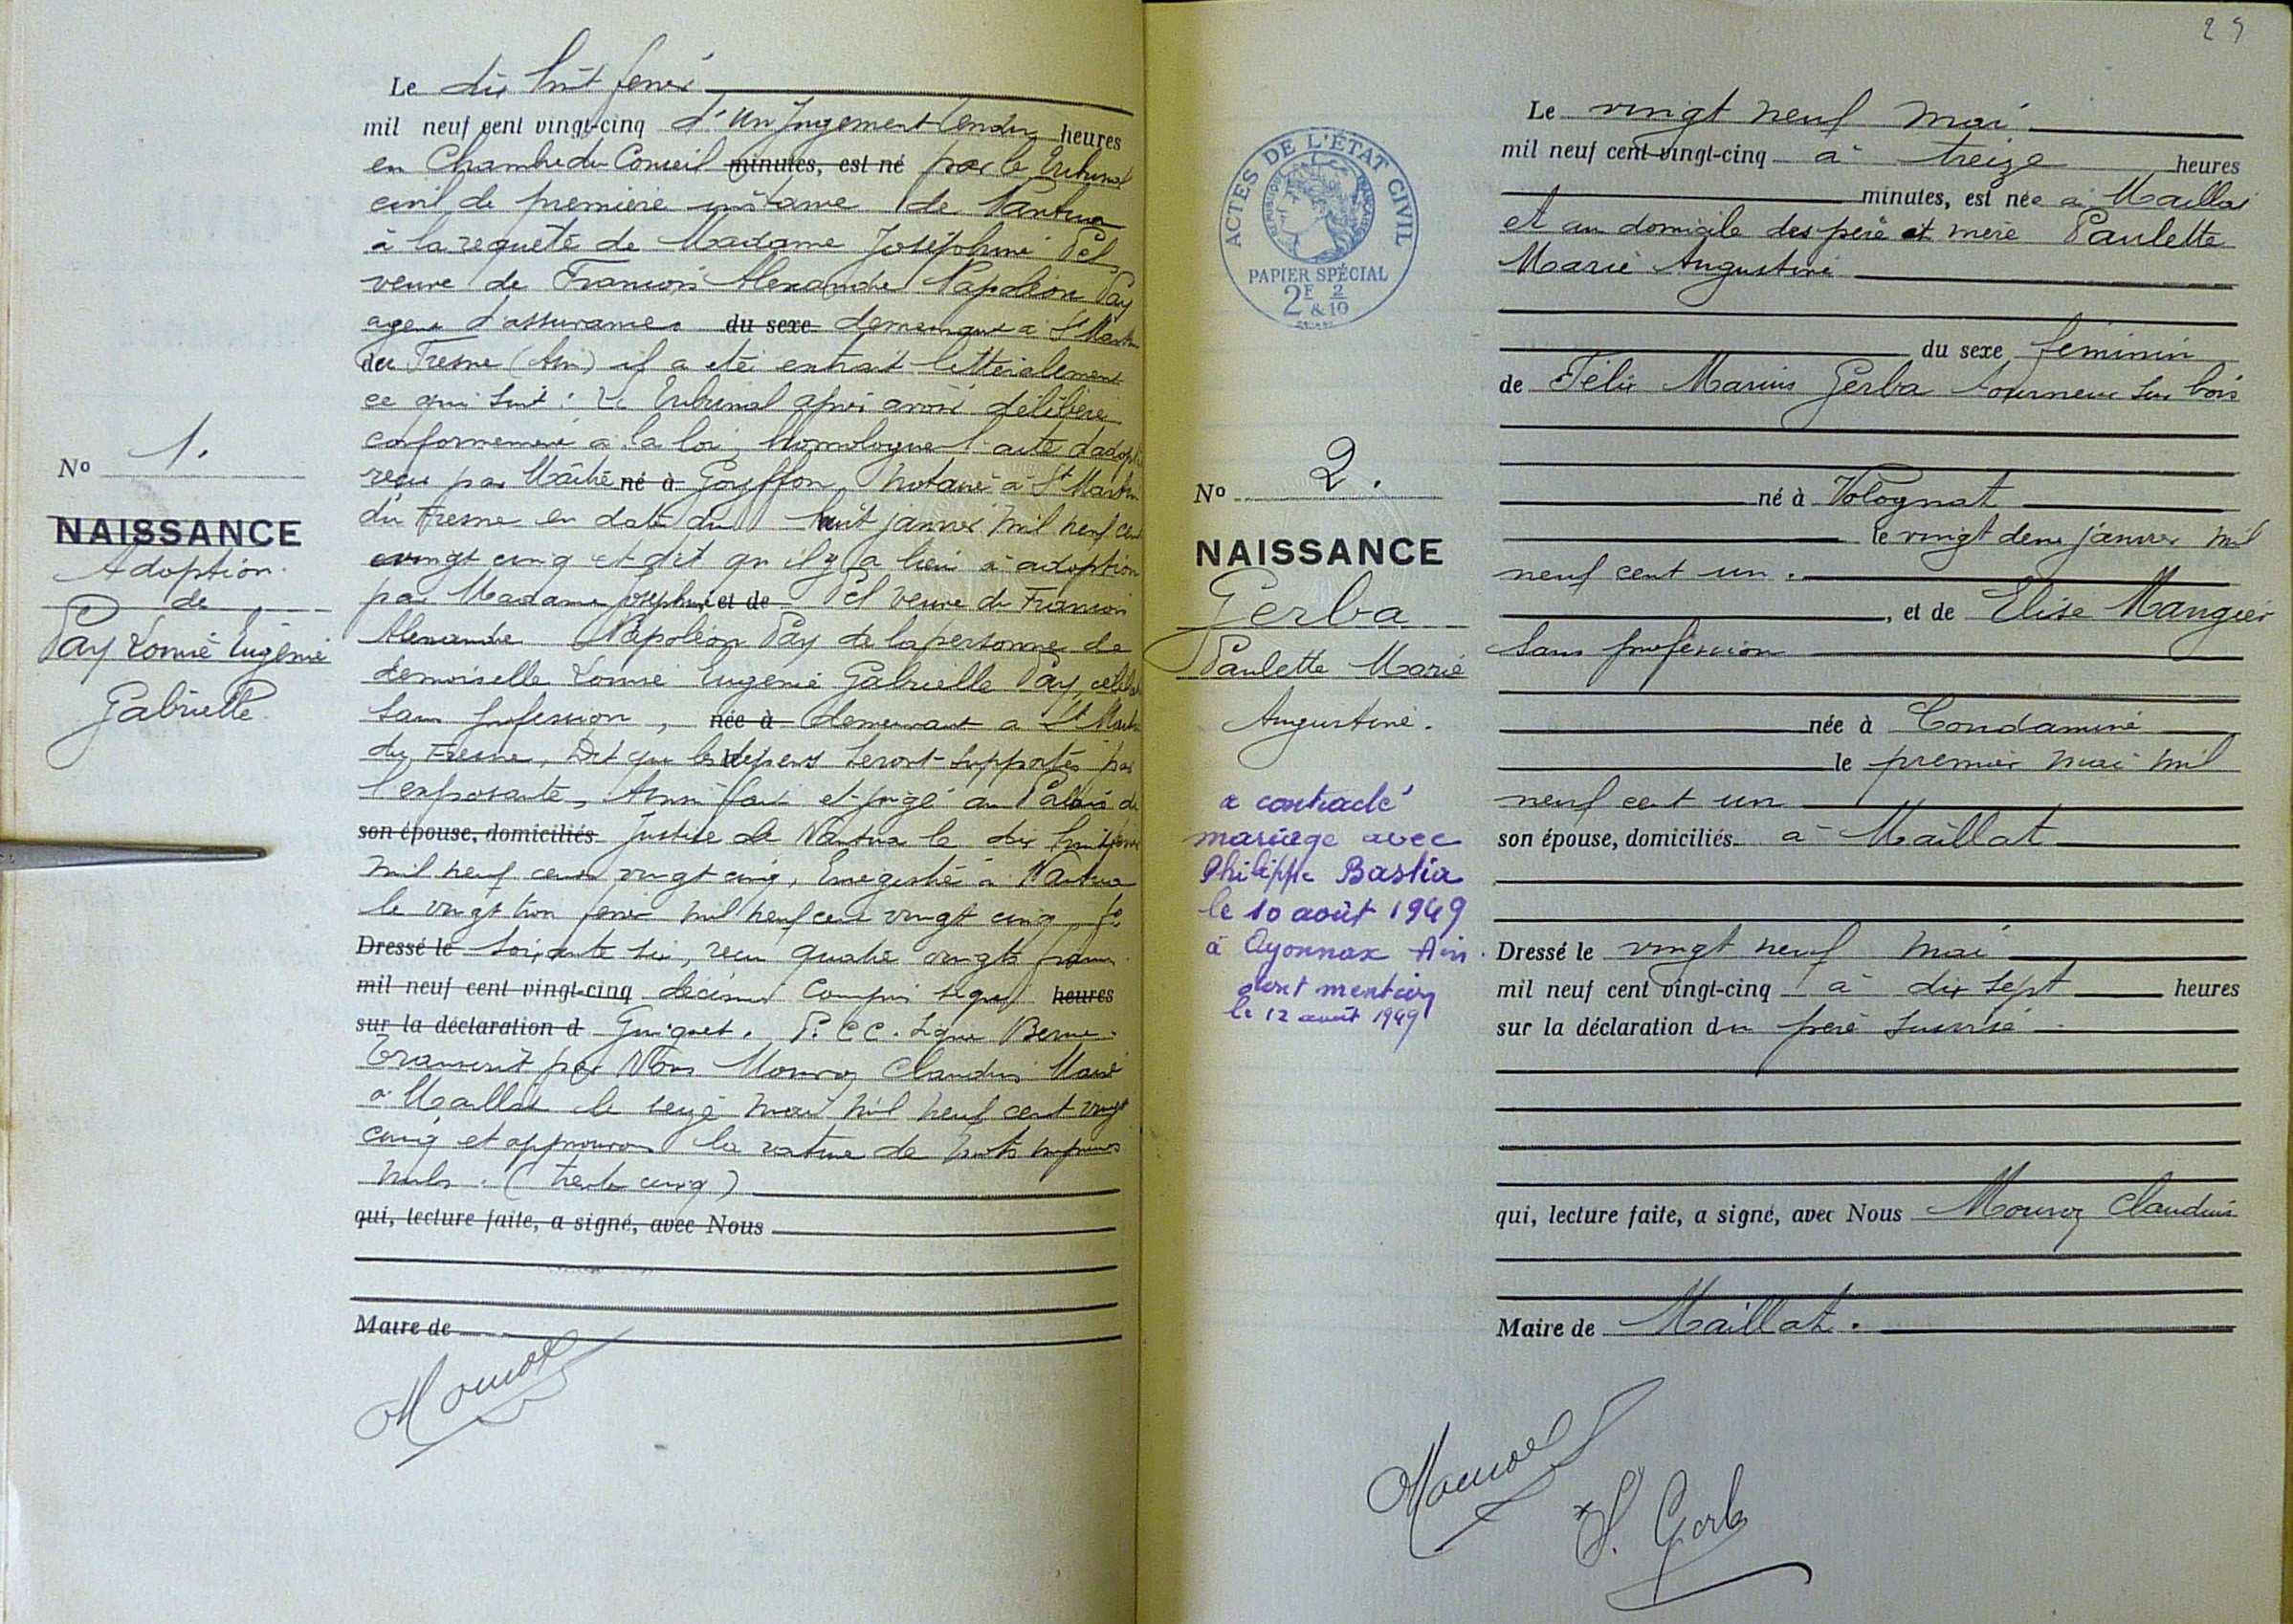 Le dix huit fevrier
mil neuf cent vingt-cinq d'un Jugement rendu heures
en Chambre du Conseil minutes, est né par le Tribunal
civil de premiere instance de Nantua
à la requête de Madame Joséphine Pel
veuve de François Alexandre Napoléon Pay
agent d'assurances du sexe demeurant à St Martin
du Fresne (Ain) il a été extrait littéralement
ce qui suit : Le Tribunal après avoir délibéré
conformement a la loi, homologue l'acte d'adoption
reçu par Maître né à Goyffon, notaire à St Martin
du Fresne en date du huit janvier mil neuf cent
vingt cinq et dit qu'il y a lieu à adoption
par Madame Joséphine et de Pel veuve de François
Alexandre Napoléon Pay de la personne de
demoiselle Louise Eugénie Gabrielle Pay, célibataire
sans profession, née à demeurant a St Martin
du Fresne, Dit que les dépens seront supportés par
l'exposante, Ainsi fait et jugé au Palais de
son épouse, domiciliés Justice de Nantua le dix huit fevrier
mil neuf cent vingt cinq, Enregistré à Nantua
le vingt trois fevrier mil neuf cent vingt cinq, fo
Dressé le soixante six, reçu quatre vingts francs
mil neuf cent vingt-cinq décimes compris signé heures
sur la déclaration d Guiguet. P.C.C. Signé
Transcrit par Nous Mouroz Claudius Maire
à Maillat le seize mai mil neuf cent vingt
cinq et approuvons la rature de mots imprimés
nuls. (trente cinq)
qui, lecture faite, a signé, avec Nous
Maire de
Mouroz
No 1.
NAISSANCE
Adoption
de
Pay Louise Eugénie
Gabrielle
29
ACTES DE L'ÉTAT CIVIL
RÉPUBLIQUE FRANÇAISE
PAPIER SPÉCIAL
2E 2/10
& 10
No 2.
NAISSANCE
Gerba
Paulette Marie
Augustine.
a contracté
mariage avec
Philippe Bastia
le 10 août 1949
à Oyonnax Ain.
dont mention
le 12 août 1949
Le vingt neuf mai
mil neuf cent vingt-cinq à treize heures
minutes, est née à Maillat
et au domicile des père et mère Paulette
Marie Augustine
du sexe féminin
de Félix Marius Gerba tourneur sur bois
né à Volognat
le vingt deux janvier mil
neuf cent un.
, et de Elise Mangier
sans profession
née à Condamine
le premier mai mil
neuf cent un
son épouse, domiciliés à Maillat
Dressé le vingt neuf mai
mil neuf cent vingt-cinq à dix sept heures
sur la déclaration du père susvisé
qui, lecture faite, a signé, avec Nous Mouroz Claudius
Maire de Maillat.
Mouroz
F. Gerba